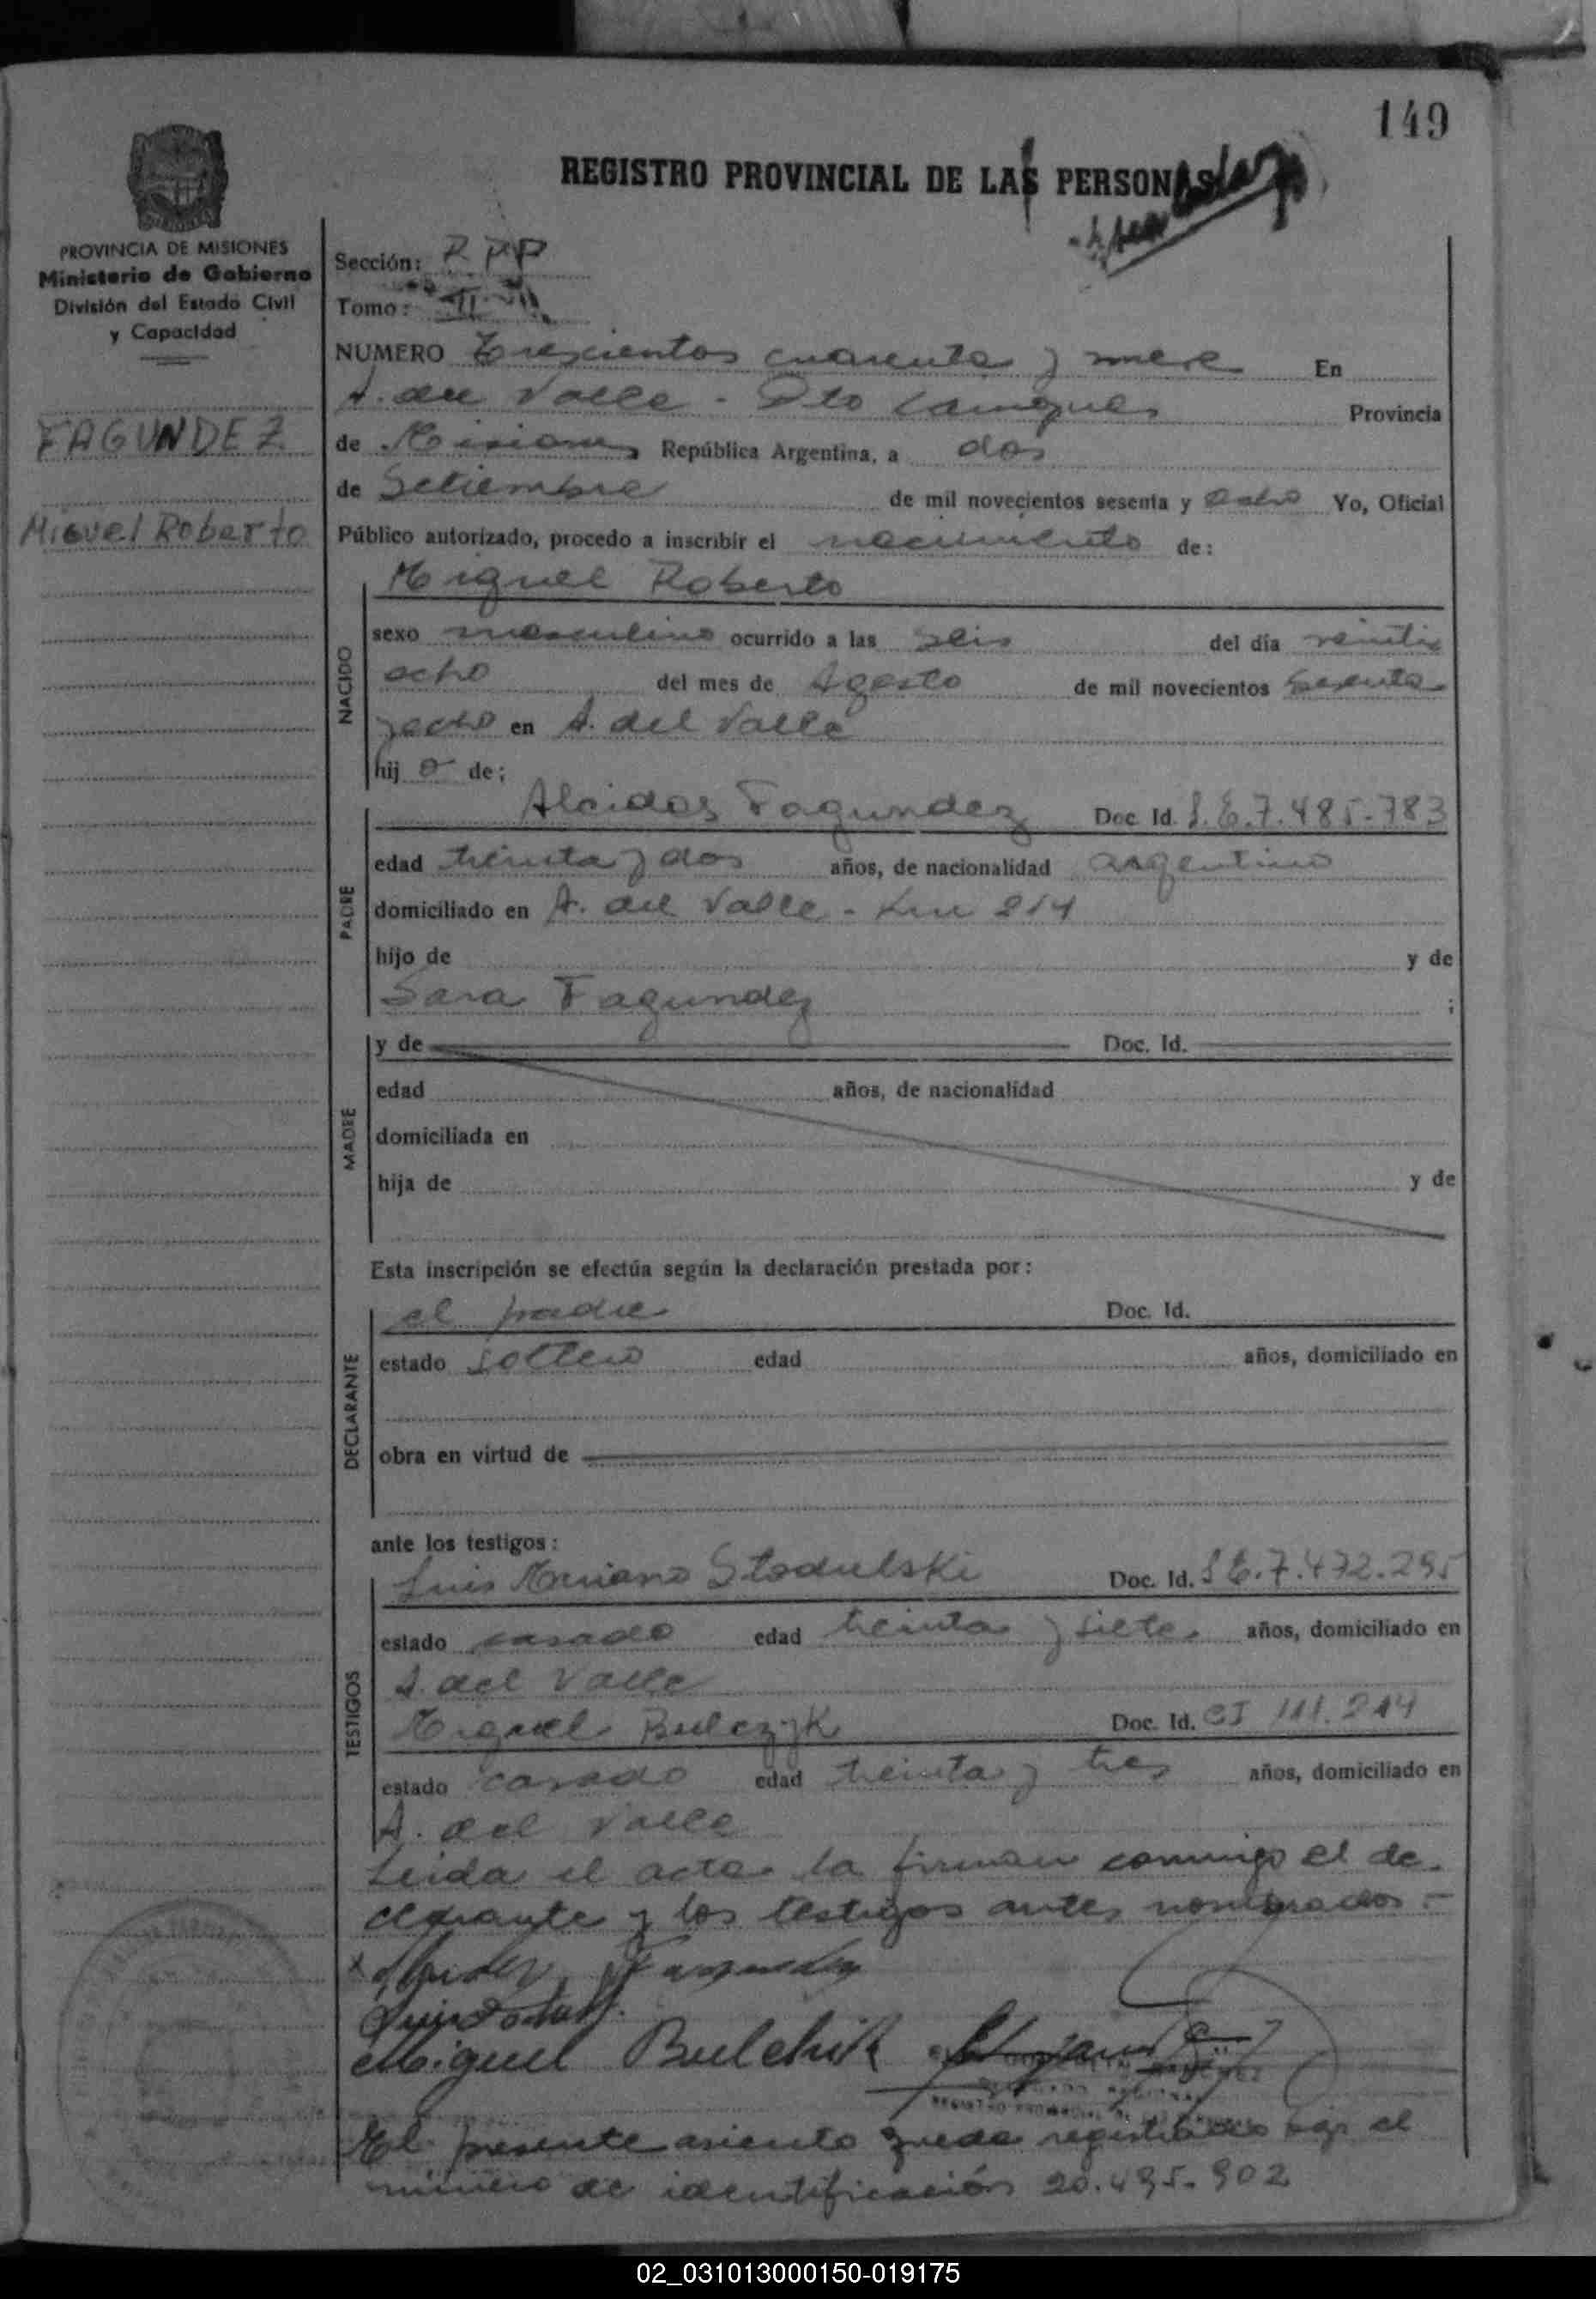 149
REGISTRO PROVINCIAL DE LAS PERSONAS
PROVINCIA DE MISIONES
Ministerio de Gobierno
División del Estado Civil
y Capacidad
FAGUNDEZ
Miguel Roberto
Sección: R P P
Tomo: II
NUMERO Trescientos cuarenta y nueve En
A. del Valle - Dto Cainguas Provincia
de Misiones República Argentina, a dos
de Setiembre de mil novecientos sesenta y ocho Yo, Oficial
Público autorizado, procedo a inscribir el nacimiento de:
Miguel Roberto
NACIDO
sexo masculino ocurrido a las seis del día veinti
ocho del mes de Agosto de mil novecientos sesenta
y ocho en A. del Valle
hij o de;
PADRE
Alcides Fagundez Doc. Id. L.E. 7.485.783
edad treinta y dos años, de nacionalidad argentino
domiciliado en A. del Valle - Km 214
hijo de y de
Sara Fagundez ;
MADRE
y de Doc. Id.
edad años, de nacionalidad
domiciliada en
hija de y de
Esta inscripción se efectúa según la declaración prestada por:
DECLARANTE
el padre Doc. Id.
estado soltero edad años, domiciliado en
obra en virtud de
ante los testigos:
TESTIGOS
Luis Mariano Stodulski Doc. Id. L E. 7.472.295
estado casado edad treinta y siete años, domiciliado en
A. del Valle
Miguel Bulczyk Doc. Id. CI 111.214
estado casado edad treinta y tres años, domiciliado en
A. del Valle
Leida el acta la firman conmigo el de-
clarante y los testigos antes nombrados.-
Miguel Bulchik
El presente asiento queda registrado bajo el
número de identificación 20.495.902
02_031013000150-019175